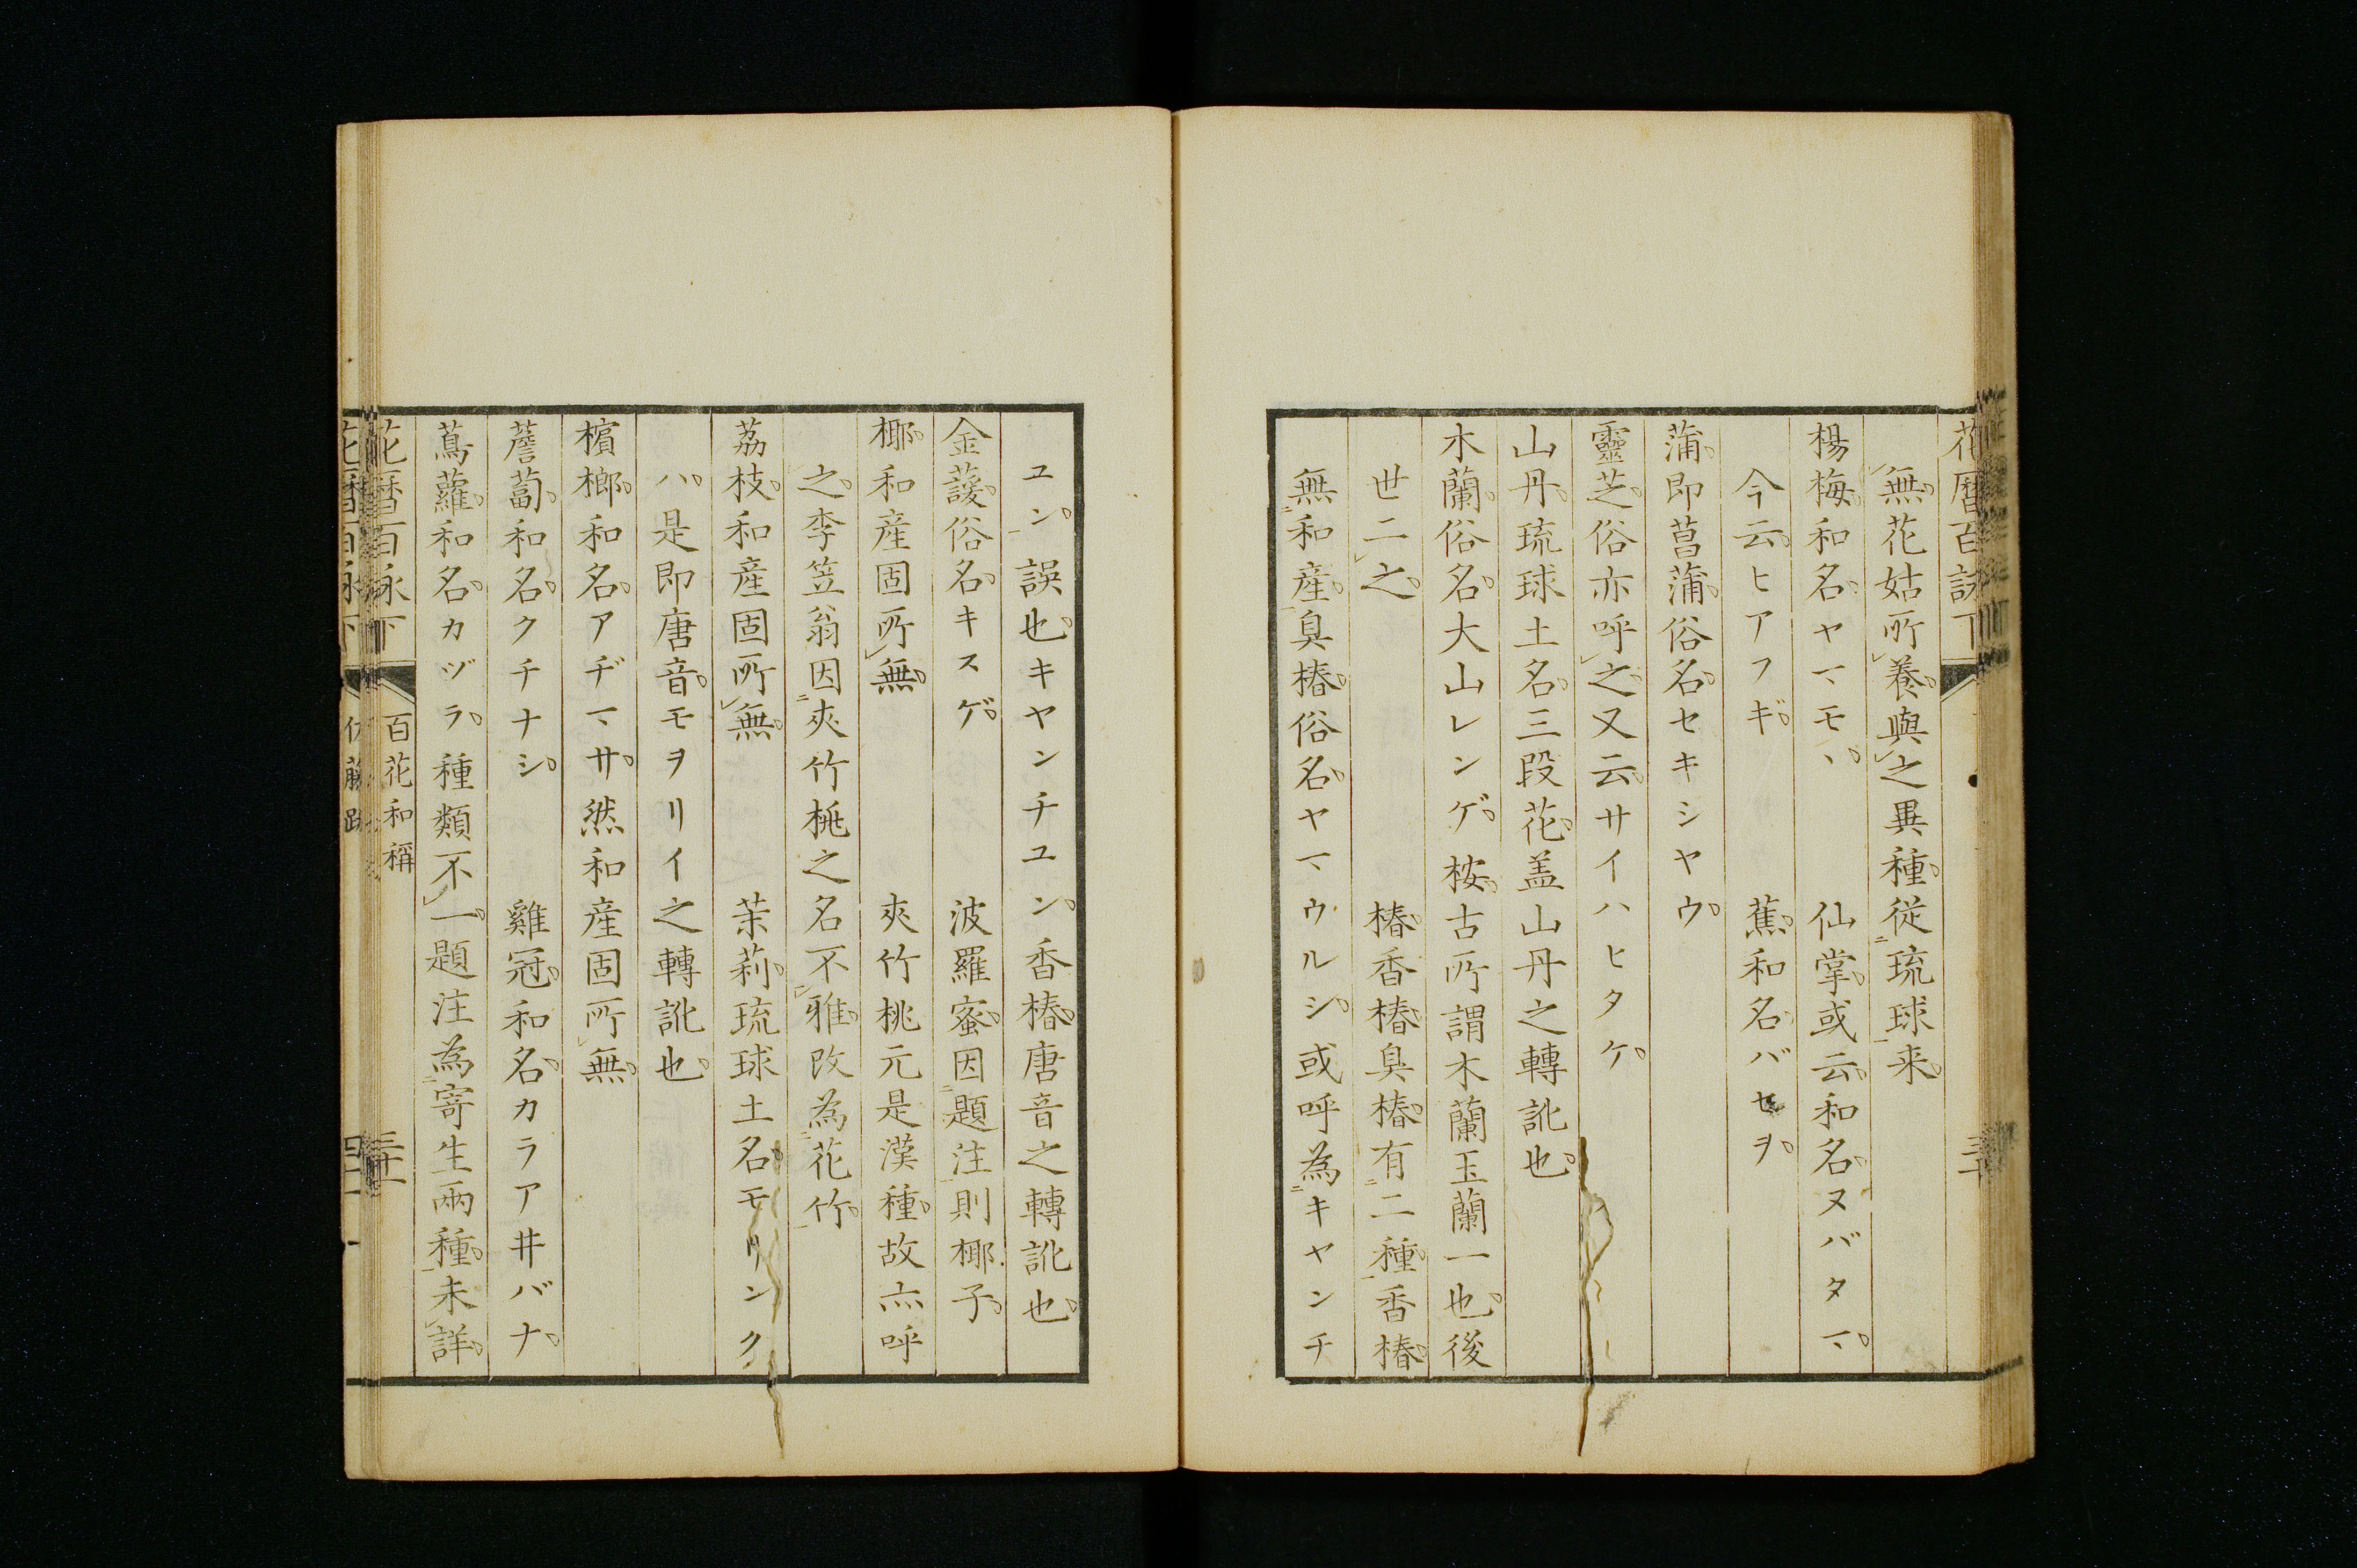 花暦百詠下
無花姑所養與之異種從琉球来
楊梅和名ヤマモヽ 仙掌或云和名ヌバタマ
今云ヒアフギ 蕉和名バセヲ
蒲即菖蒲俗名セキシヤウ
靈芝俗亦呼之又云サイハヒタケ
山丹琉球土名三段花盖山丹之轉訛也
木蘭俗名大山レンゲ桉古所謂木蘭玉蘭一也後
世二之 椿香椿臭椿有二種香椿
無和産臭椿俗名ヤマウルシ或呼為キヤンチ
ユン誤也キヤンチユン香椿唐音之轉訛也
金萲俗名キスゲ 波羅蜜因題注則椰子
椰和産固所無 夾竹桃元是漢種故亦呼
之李笠翁因夾竹桃之名不雅改為花竹
荔枝和産固所無 茉莉琉球土名モリンク
ハ是即唐音モヲリイ之轉訛也
檳榔和名アヂマサ然和産固所無
薝蔔和名クチナシ 雞冠和名カラアヰバナ
蔦蘿和名カヅラ種類不一題注為寄生兩種未詳
花暦百詠下 百花和稱 三十一